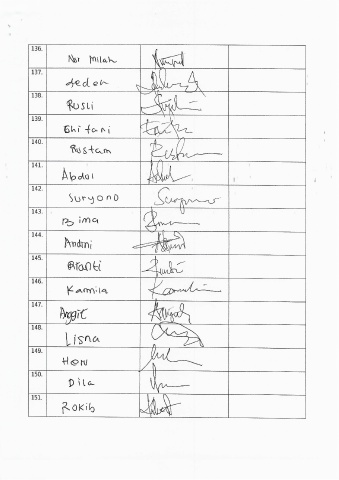 136. Nor Milah
137. Jeden
138. Rusli
139. Ehi tani
140. Rustam
141. Abdol
142. Suryono
143. Bima
144. Andini
145. Branti
146. Kamila
147. Anggit
148. Lisna
149. Heri
150. Dila
151. Rokib